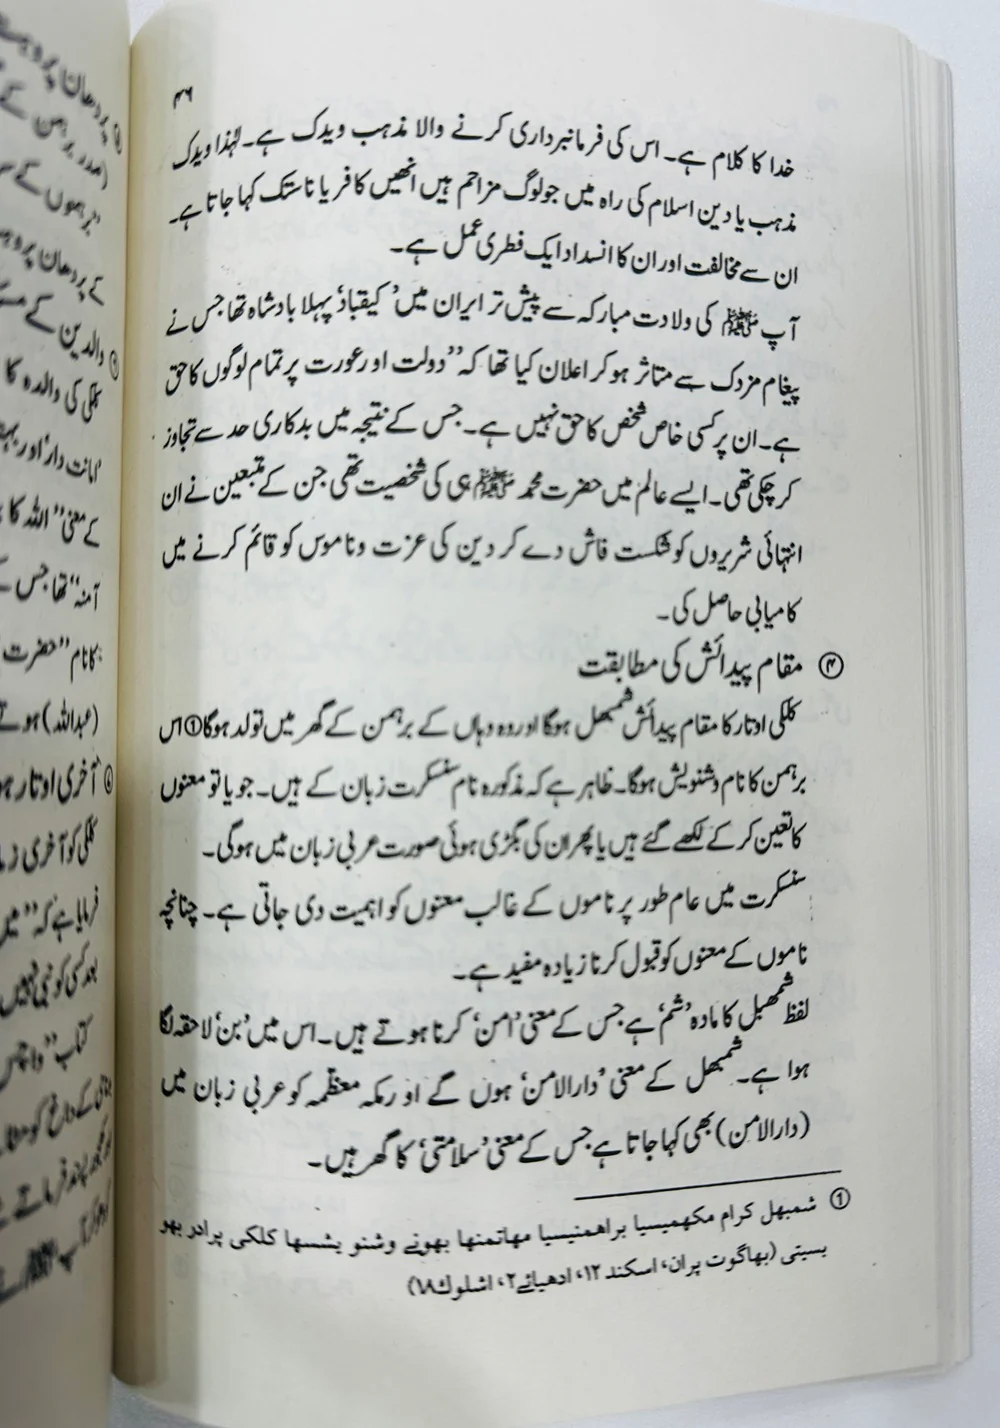 ۴۶
خدا کا کلام ہے۔ اس کی فرمانبرداری کرنے والا مذہب ویدک ہے۔ لہٰذا ویدک
مذہب یا دین اسلام کی راہ میں جو لوگ مزاحم ہیں انھیں کافر یا ناستک کہا جاتا ہے۔
ان سے مخالفت اور ان کا انسداد ایک فطری عمل ہے۔
آپ ﷺ کی ولادت مبارکہ سے پیش تر ایران میں ’کیقباد‘ پہلا بادشاہ تھا جس نے
پیغام مزدک سے متاثر ہو کر اعلان کیا تھا کہ ’’دولت اور عورت پر تمام لوگوں کا حق
ہے۔ ان پر کسی خاص شخص کا حق نہیں ہے۔ جس کے نتیجہ میں بدکاری حد سے تجاوز
کر چکی تھی۔ ایسے عالم میں حضرت محمد ﷺ ہی کی شخصیت تھی جن کے متبعین نے ان
انتہائی شریروں کو شکست فاش دے کر دین کی عزت و ناموس کو قائم کرنے میں
کامیابی حاصل کی۔
④ مقام پیدائش کی مطابقت
کلکی اوتار کا مقام پیدائش شمبھل ہوگا اور وہ وہاں کے برہمن کے گھر میں تولد ہوگا① اس
برہمن کا نام وشنویش ہوگا۔ ظاہر ہے کہ مذکورہ نام سنسکرت زبان کے ہیں۔ جو یا تو معنوں
کا تعین کر کے لکھے گئے ہیں یا پھر ان کی بگڑی ہوئی صورت عربی زبان میں ہوگی۔
سنسکرت میں عام طور پر ناموں کے غالب معنوں کو اہمیت دی جاتی ہے۔ چنانچہ
ناموں کے معنوں کو قبول کرنا زیادہ مفید ہے۔
لفظ شمبھل کا مادہ ’شم‘ ہے جس کے معنی ’امن‘ کرنا ہوتے ہیں۔ اس میں ’بن‘ لاحقہ لگا
ہوا ہے۔ شمبھل کے معنی ’دارالامن‘ ہوں گے اور مکہ معظمہ کو عربی زبان میں
(دارالامن) بھی کہا جاتا ہے جس کے معنی ’سلامتی‘ کا گھر ہیں۔
① شمبھل کرام مکھمیسیا براھمنیسیا مھاتمنھا بھونے وشنو یشسھا کلکی پرادر بھو
بسیتی (بھاگوت پران، اسکند ۱۲، ادھیائے ۲، اشلوک ۱۸)